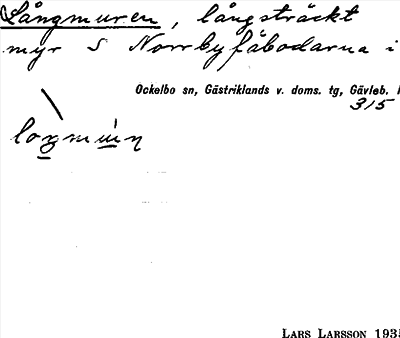 Långmuren, långsträckt
myr S Norrbyfäbodarna i
Ockelbo sn, Gästriklands v. doms. tg, Gävleb.
315
LARS LARSSON 1935